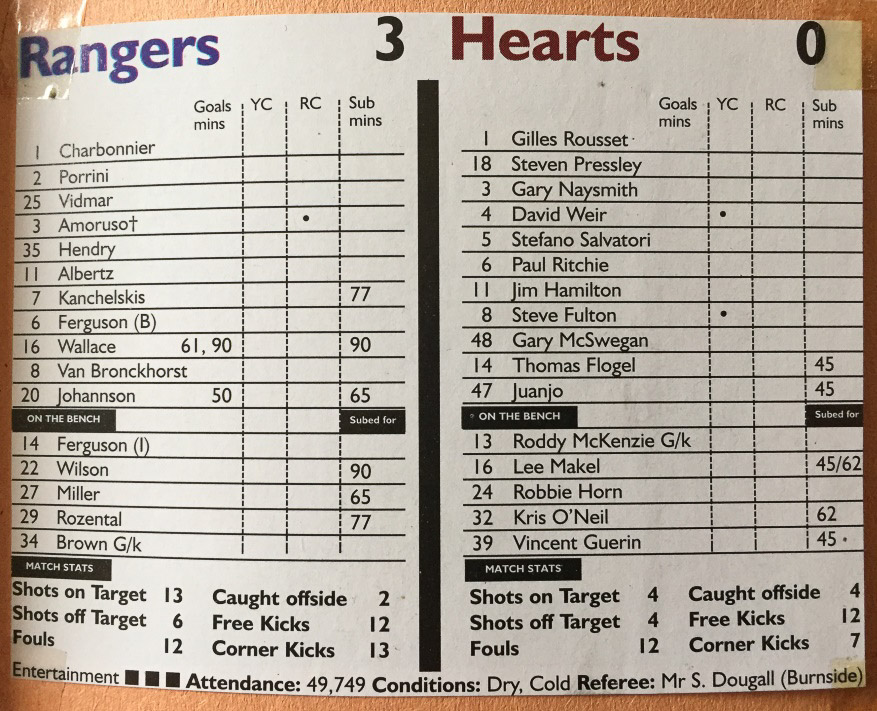 Rangers 3
Goals mins YC RC Sub mins
1 Charbonnier
2 Porrini
25 Vidmar
3 Amoruso† •
35 Hendry
11 Albertz
7 Kanchelskis 77
6 Ferguson (B)
16 Wallace 61, 90 90
8 Van Bronckhorst
20 Johannson 50 65
ON THE BENCH Subed for
14 Ferguson (I)
22 Wilson 90
27 Miller 65
29 Rozental 77
34 Brown G/k
MATCH STATS
Shots on Target 13 Caught offside 2
Shots off Target 6 Free Kicks 12
Fouls 12 Corner Kicks 13
Hearts 0
Goals mins YC RC Sub mins
1 Gilles Rousset
18 Steven Pressley
3 Gary Naysmith
4 David Weir •
5 Stefano Salvatori
6 Paul Ritchie
11 Jim Hamilton
8 Steve Fulton •
48 Gary McSwegan
14 Thomas Flogel 45
47 Juanjo 45
ON THE BENCH Subed for
13 Roddy McKenzie G/k
16 Lee Makel 45/62
24 Robbie Horn
32 Kris O'Neil 62
39 Vincent Guerin 45
MATCH STATS
Shots on Target 4 Caught offside 4
Shots off Target 4 Free Kicks 12
Fouls 12 Corner Kicks 7
Entertainment ■ ■ ■ Attendance: 49,749 Conditions: Dry, Cold Referee: Mr S. Dougall (Burnside)